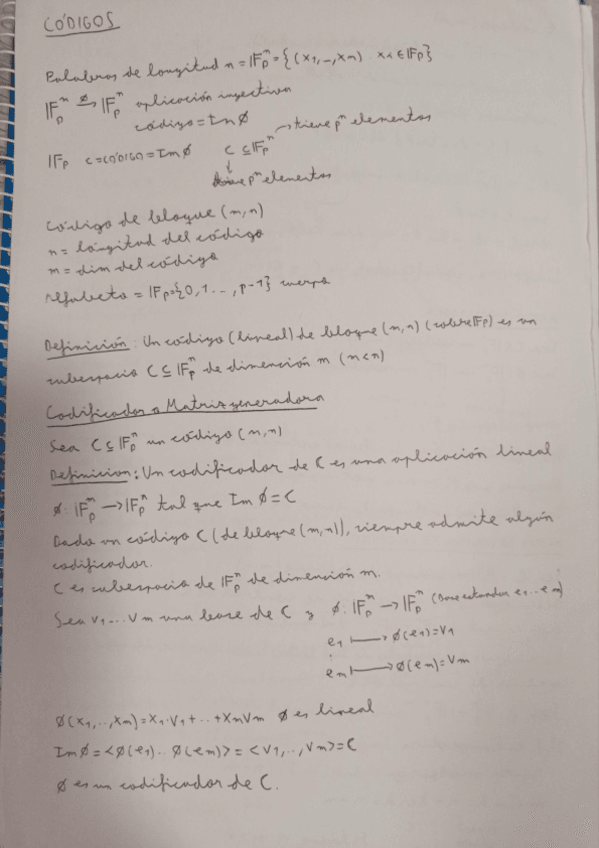 CÓDIGOS
Palabras de longitud n = 𝔽ₚⁿ = {(x₁,..,xₙ) xᵢ ∈ 𝔽ₚ}
𝔽ₚᵐ →^ø 𝔽ₚⁿ aplicación inyectiva
código = Im ø
𝔽ₚ C = CÓDIGO = Im ø C ⊆ 𝔽ₚⁿ → tiene pⁿ elementos
↓
tiene pᵐ elementos
Código de bloque (m,n)
n = longitud del código
m = dim del código
Alfabeto = 𝔽ₚ = {0,1..., p-1} cuerpo
Definición: Un código (lineal) de bloque (m,n) (sobre 𝔽ₚ) es un
subespacio C ⊆ 𝔽ₚⁿ de dimensión m (m<n)
Codificador o Matriz generadora
Sea C ⊆ 𝔽ₚⁿ un código (m,n)
Definicion: Un codificador de C es una aplicación lineal
ø: 𝔽ₚᵐ → 𝔽ₚⁿ tal que Im ø = C
Dado un código C (de bloque (m,n)), siempre admite algún
codificador.
C es subespacio de 𝔽ₚⁿ de dimensión m.
Sea v₁...vm una base de C y ø: 𝔽ₚᵐ → 𝔽ₚⁿ (Base estandar e₁...em)
e₁ ↦ ø(e₁) = v₁
⋮
em ↦ ø(em) = vm
ø(x₁,..,xm) = x₁·v₁+..+xmvm ø es lineal
Im ø = <ø(e₁)..ø(em)> = <v₁,..,vm> = C
ø es un codificador de C.